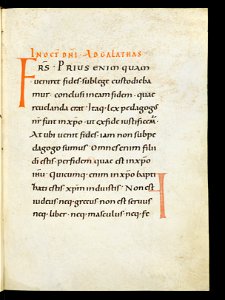 IN OCT DNI · AD GALATHAS
FRS · PRIUS ENIM QUAM
veniret fides · sub lege custodieba
mur conclusi in eam fidem · quae
revelanda erat · Itaq · lex pedagogus
nr fuit in xpo · ut ex fide iustificem
At ubi venit fides · iam non sub pe
dagogo sumus · Omnes enim filii
di estis · per fidem quae est in xpo
ihu · Quicumq · enim in xpo bapti
zati estis xpm induistis · Non est
iudeus neq · grecus non est servus
neq · liber · neq · masculus neq · fe